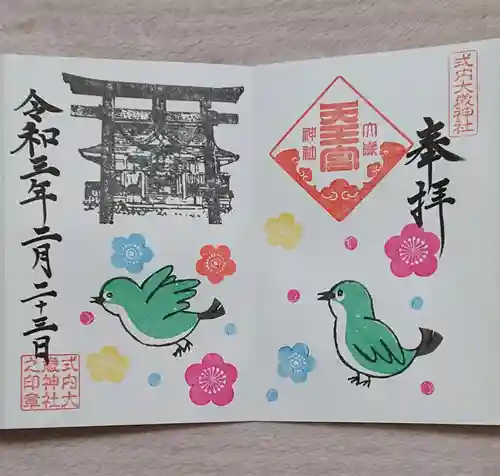 式内大歳神社
奉拝
天王宮
大歳
神社
令和三年二月二十三日
式内大
歳神社
之印章